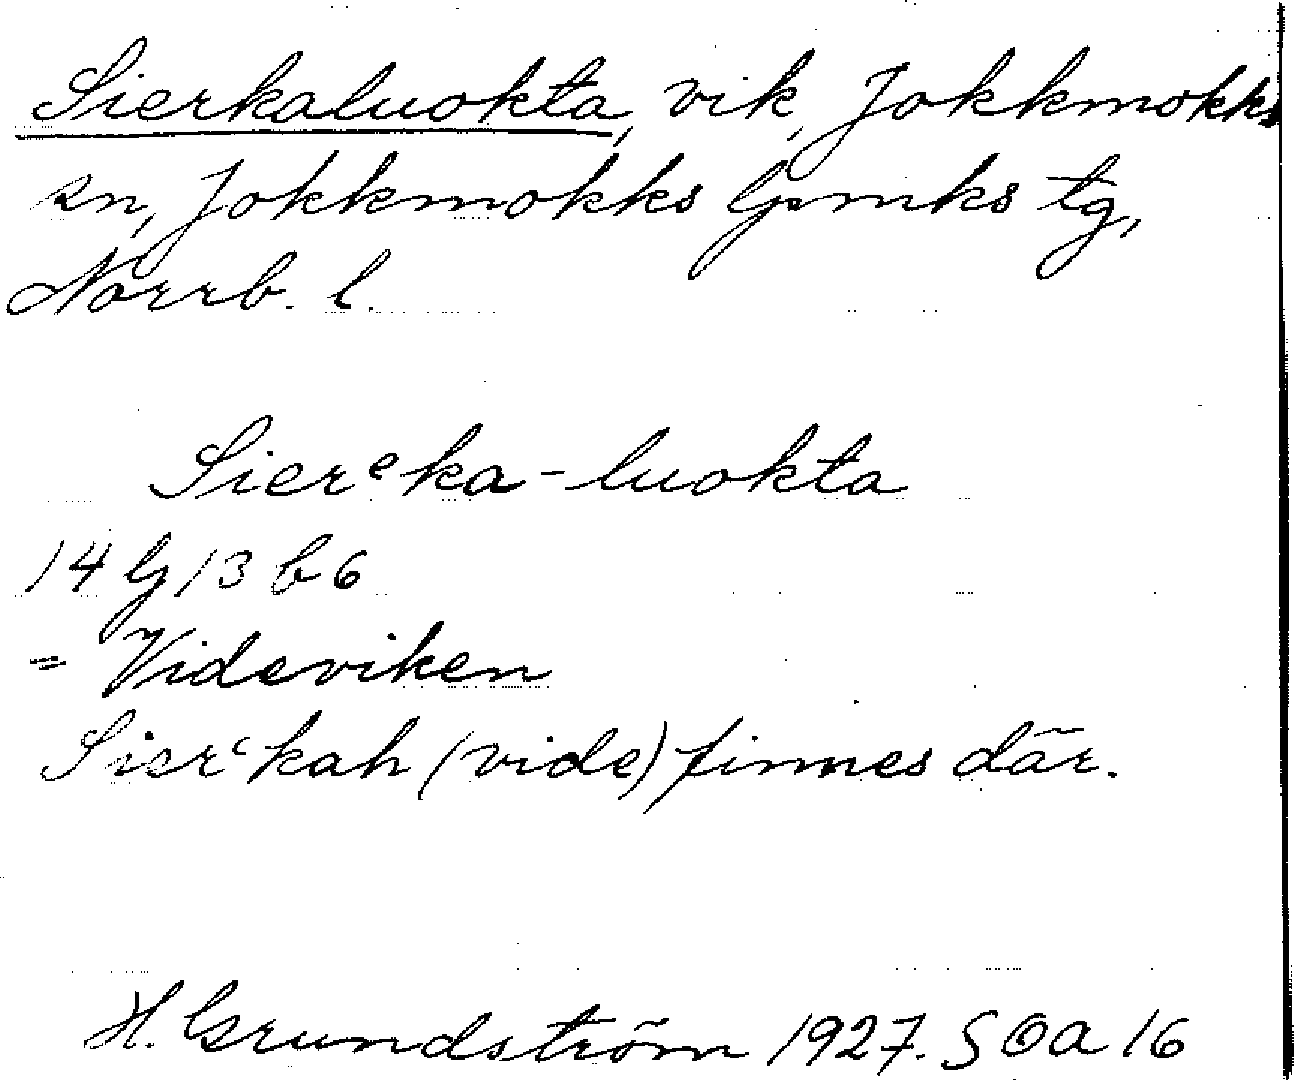 Sierkaluokta, vik, Jokkmokks
sn, Jokkmokks Gmnks tg,
Norrb. l.
Sierᵉka-luokta
14 G 13 b 6
= Videviken
Sierᵉkah (vide) finnes där.
H. Grundström 1927. SOA 16